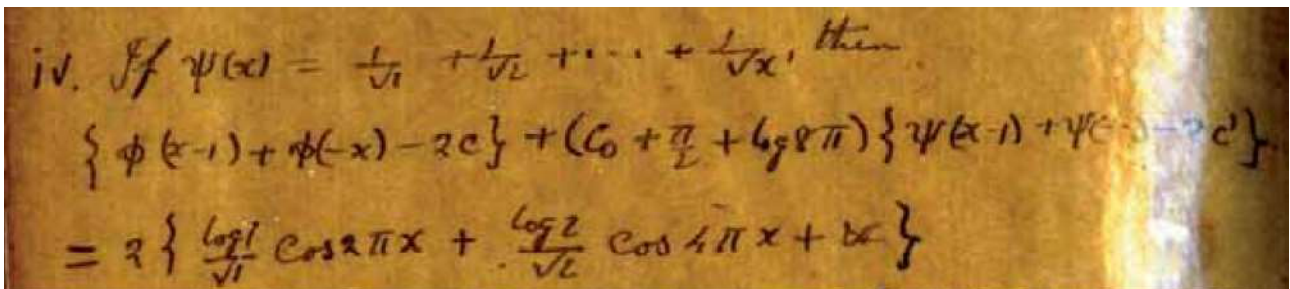 iv. If ψ(x) = 1/√1 + 1/√2 + ··· + 1/√x, then
{φ(x-1) + φ(-x) - 2c} + (C₀ + π/2 + log 8π){ψ(x-1) + ψ( c'}
= 2{ log 1/√1 cos 2πx + log 2/√2 cos 4πx + &c }